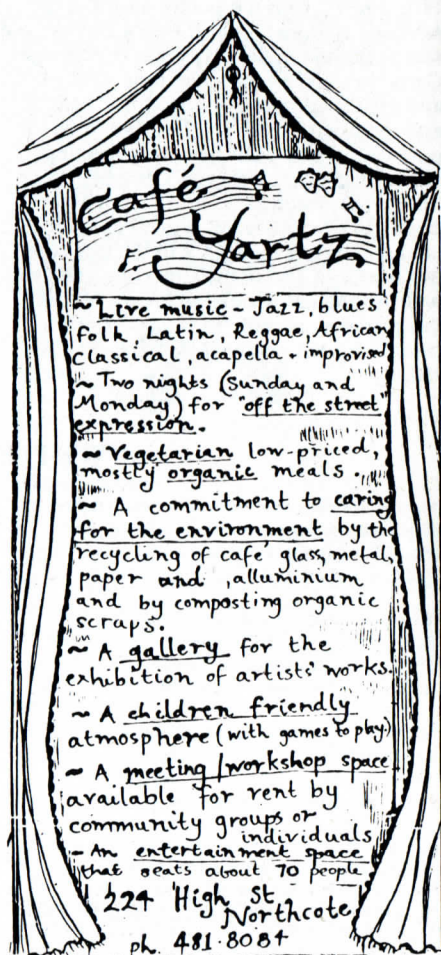 Café
Yartz
~ Live music ~ Jazz, blues
folk, Latin, Reggae, African
Classical, acapella + improvised
~ Two nights (Sunday and
Monday) for "off the street"
expression.
~ Vegetarian low-priced,
mostly organic meals.
~ A commitment to caring
for the environment by the
recycling of café glass, metal,
paper and , alluminium
and by composting organic
scraps.
~ A gallery for the
exhibition of artists' works.
~ A children friendly
atmosphere (with games to play.)
~ A meeting/workshop space
available for rent by
community groups or
individuals
~ An entertainment space
that seats about 70 people
224 High St
Northcote
ph. 481·8084